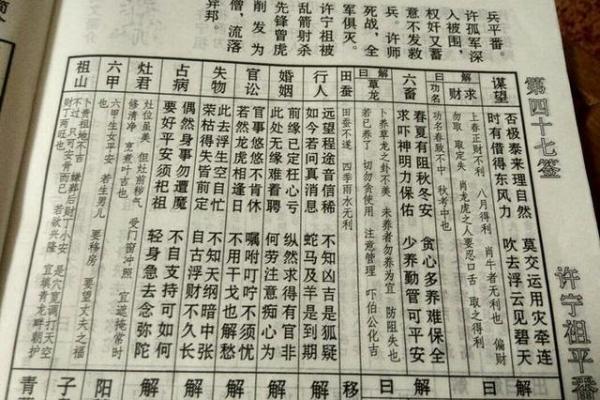 兵平番。
许孤军深
入被围，
权奸又蓄
意不发救
兵。许师
死战，全
军俱灭。
许宁祖被
乱箭射杀
先锋曾虎
削发为
僧，流落
异邦。
第四十七签
许宁祖平番
谋望
否极泰来理自然 莫交运用灾牵连
时有借得东风力 吹去浮云见碧天
解曰
求财
解曰
上春正财不利 八月得利 肖牛者无利也 偏财
勿取 取定失 肖龙虎之人要忍口舌 取之得利
功名
曰
功名春致不中 秋考中也
六畜
春夏有阻秋冬安 贪心多养难保全
求吓神明力保佑 少养勤管可平安
解曰
草龙
卜养草龙之卦不美 未养者勿养为宜 防阻失也
若已养了 切勿贪使用 注意管理 吓伯公化吉
田蚕
田蚕不遂 四季雨水无利
移
行人
远望程途音信稀 不知凶吉是狐疑
如今若问真消息 蛇马及羊是到期
解
婚姻
前缘已定枉心亏 纵然求得有官非
此处无缘难看聘 何劳注意痴心为
解
官讼
官事悠悠不肯休 嘱咐叮咛不须忧
若然龙虎相逢日 不用干戈也解愁
解
失物
此去浮生空自忙 不知天纲暗中张
荣枯得失皆前定 自古浮财不久长
解
占病
偶然身事勿遭魔 不自支持可如何
要好平安须祀祖 轻身急去念弥陀
解
灶君
灶位虽美 但灶前秽气 受门窗冲照 宜遮掩常时
修清净 烹煮叶吉也
阳
六甲
六甲生女平安 若生男儿 要移房 要望丈夫之福
也
子
祖山
青